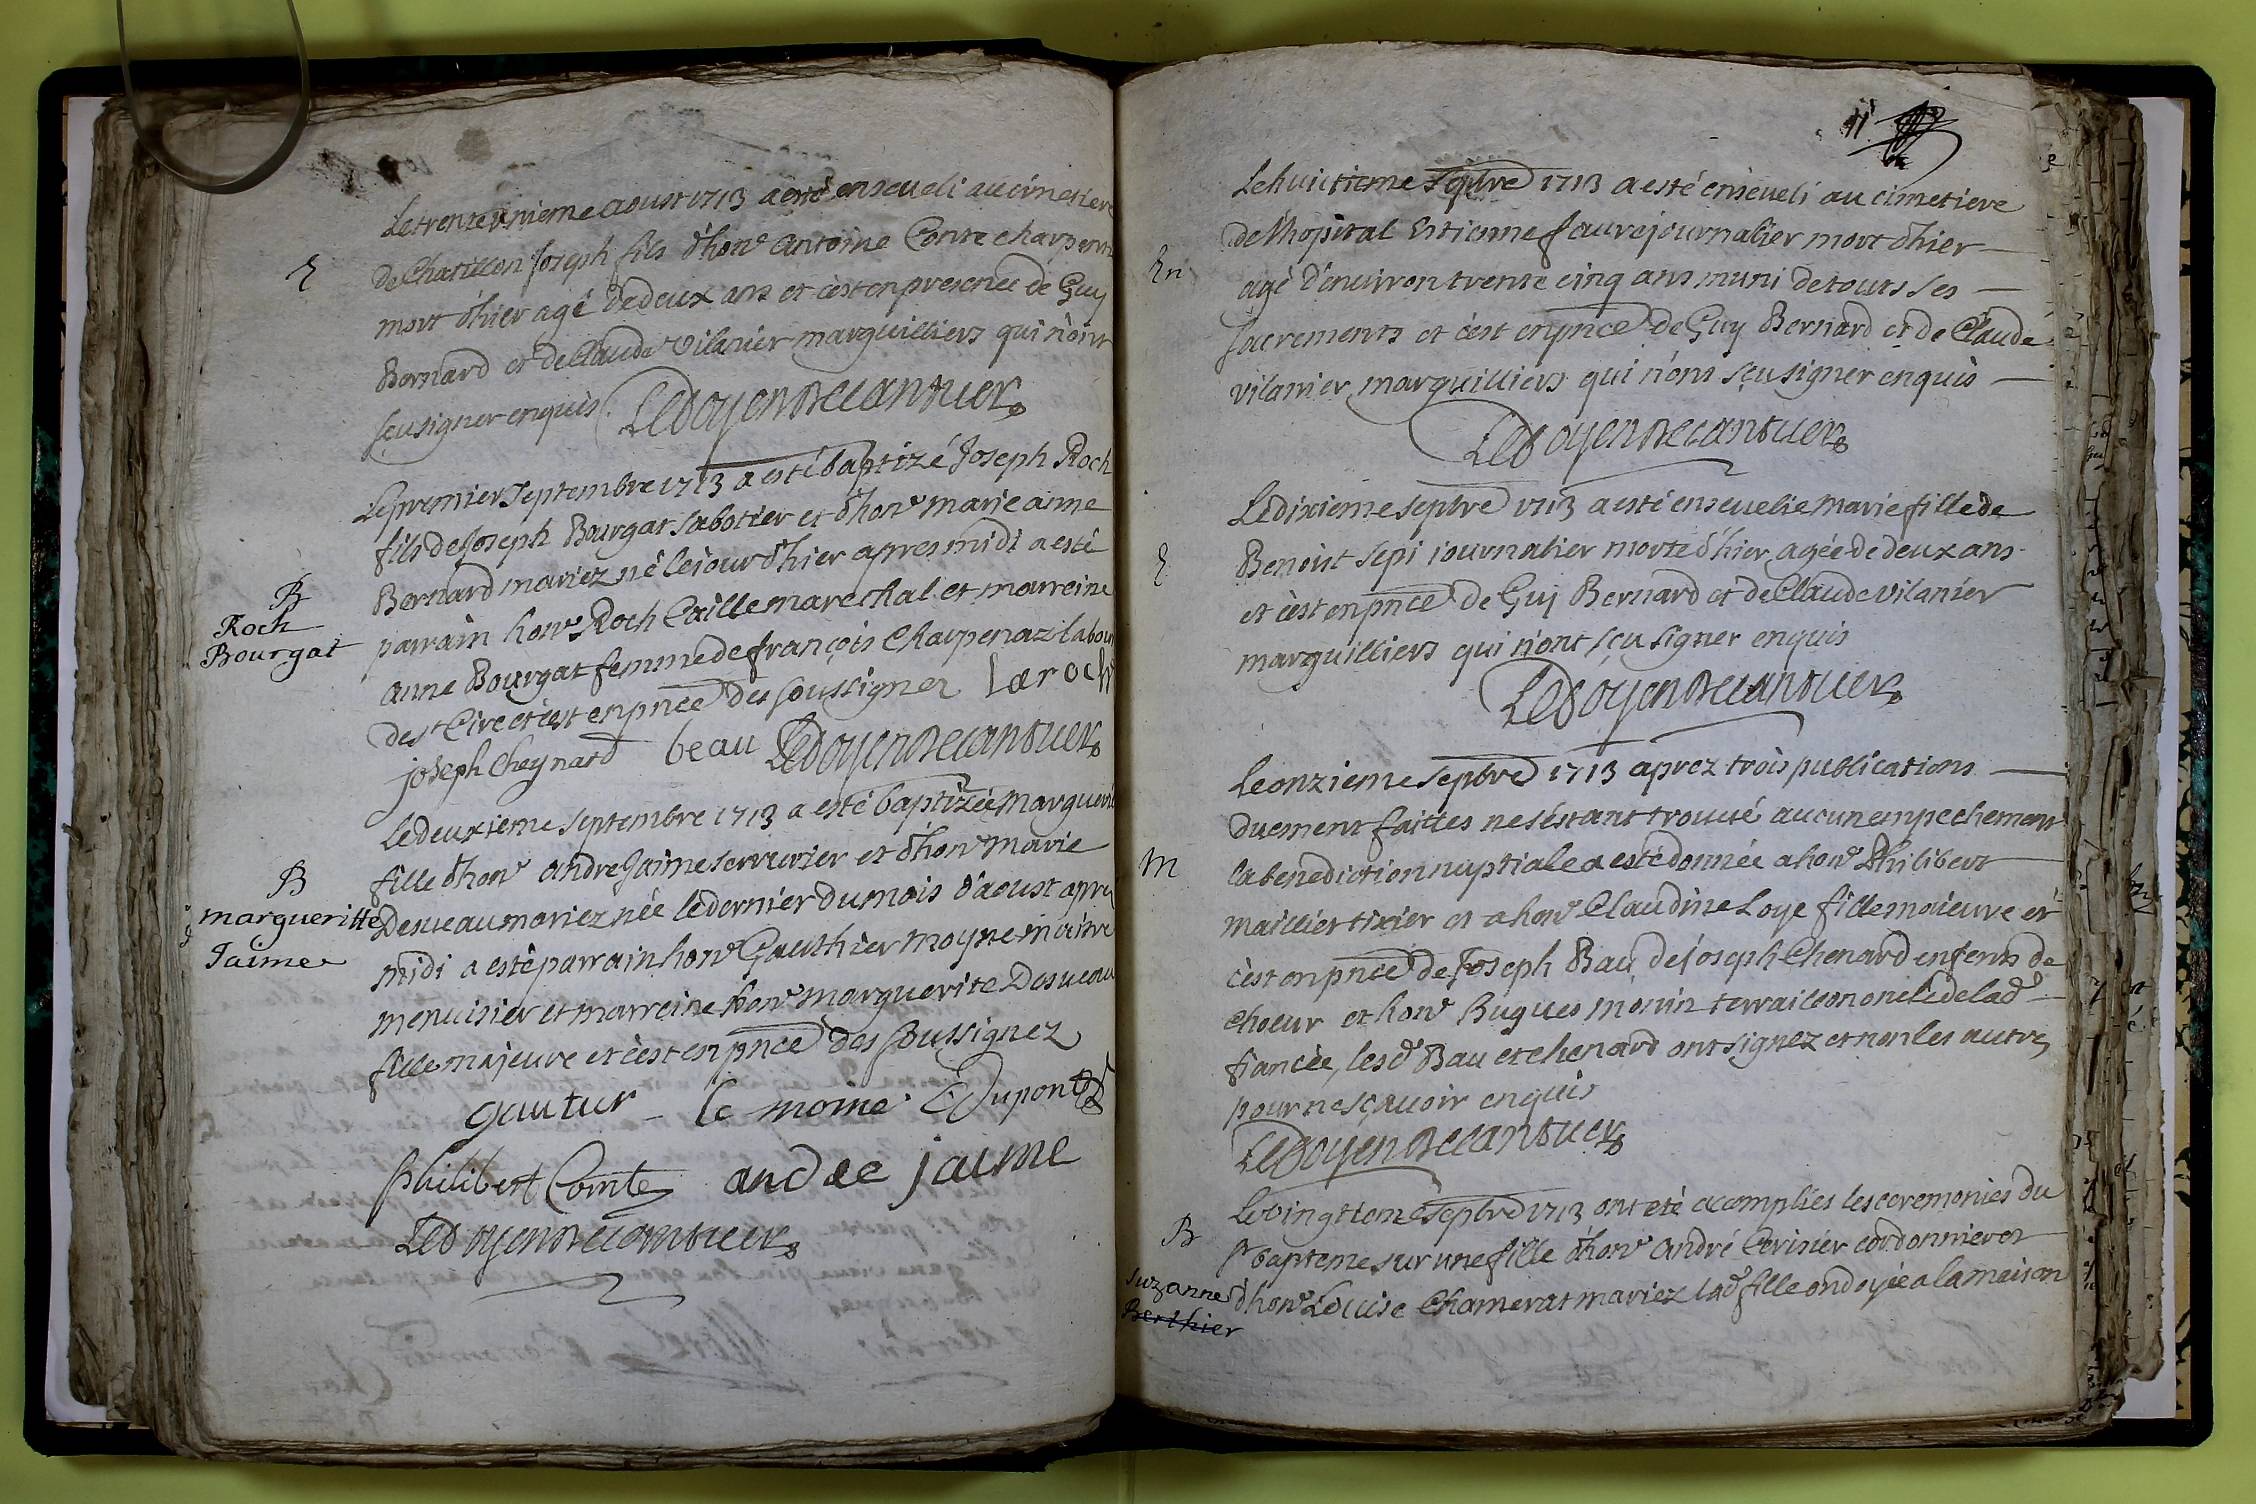 Le trente unieme aoust 1713 a esté enseveli au cimetiere
E
de Chatillon Joseph fils d'hon^e Antoine Conte charpent
mort d'hier agé de deux ans et c'est en presence de Guy
Bernard et de Claude Vilanier marguilliers qui n'ont
sçu signer enquis. Ledoyen Decantuer
Le premier septembre 1713 a esté baptizé Joseph Roch
fils de Joseph Bourgat sabotier et d'hon^e marie anne
B
Roch
Bourgat
Bernard mariez né le jour d'hier apres midi a esté
parrain hon^e Roch Caille marechal et marreine
anne Bourgat femme de françois Charpenaz labou
de s^t Cire et c'est en pnce des soussignez Laroch
joseph Cheynard beau Ledoyen Decantuer
Le deuxieme septembre 1713 a esté baptizée marguerit
fille d'hon^e andre Jaime serrurier et d'hon^e marie
B
margueritte
Jaime
Desveau mariez née le dernier du mois d'aoust apres
midi a esté parrain hon^e Gauthier moyne maitre
menuisier et marreine hon^e marguerite Desveau
fille majeure et c'est en pnce des soussignez
gautur le moine Dupont
Philibert Comte andre jaime
Ledoyen Decantuer
11
Le huictieme septbre 1713 a esté enseveli au cimetiere
de l'hopital Estienne faure journalier mort d'hier
En
agé d'environ trente cinq ans muni de touts ses
sacrements et c'est en pnce de Guy Bernard et de Claude
vilanier marguilliers qui n'ont sçu signer enquis
Ledoyen Decantuer
Le dixieme septbre 1713 a esté ensevelie marie fille de
E
Benoit Sepi journalier morte d'hier agée de deux ans
et c'est en pnce de Guy Bernard et de Claude vilanier
marguilliers qui n'ont sçu signer enquis
Ledoyen Decantuer
Le onzieme septbre 1713 aprez trois publications
duement faittes ne s'estant trouvé aucun empechement
M
la benediction nuptiale a esté donnée a hon^e Philibert
maillier tixier et a hon^e Claudine Loye fille majeure et
c'est en pnce de Joseph Bau de Joseph Chenard enfents de
choeur et hon^e Hugues monin terraillon oncle de lad^e
fiancée, lesd^s Bau et chenard ont signez et non les autres
pour ne sçavoir enquis
Ledoyen Decantuer
Le vingtieme septbre 1713 ont eté accomplies les ceremonies du
B
s^t bapteme sur une fille d'hon^e André Cerisier cordonnier et
Suzanne
Berthier
d'hon^e Louise Chamerat mariez lad^e fille ondoyée a la maison